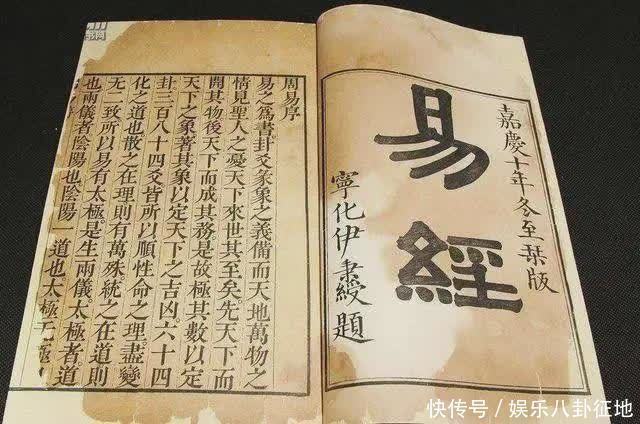 嘉慶十年冬至栞版
易經
寧化伊秉綬題
周易序
易之爲書卦爻彖象之義備而天地萬物之
情見聖人之憂天下來世其至矣先天下而
開其物後天下而成其務是故極其數以定
天下之象著其象以定天下之吉凶六十四
卦三百八十四爻皆所以順性命之理盡變
化之道也散之在理則有萬殊統之在道則
无二致所以易有太極是生兩儀太極者道
也兩儀者陰陽也陰陽一道也太極无極
快传号／娱乐八卦征地